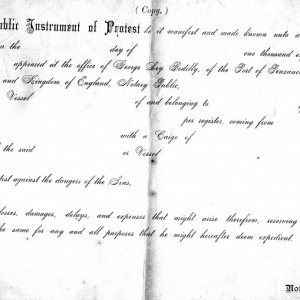 ( Copy. )
ublic Instrument of Protest be it manifest and made known unto a
n the day of one thousand
appeared at the office of George Bodilly, of the Port of Penzan
and Kingdom of England, Notary Public,
Vessel of and belonging to
per register, coming from
with a Cargo of
the said or Vessel
test against the dangers of the Seas,
losses, damages, delays, and expenses that might arise therefrom, reserving
he same for any and all purposes that he might hereafter deem expedient.
No